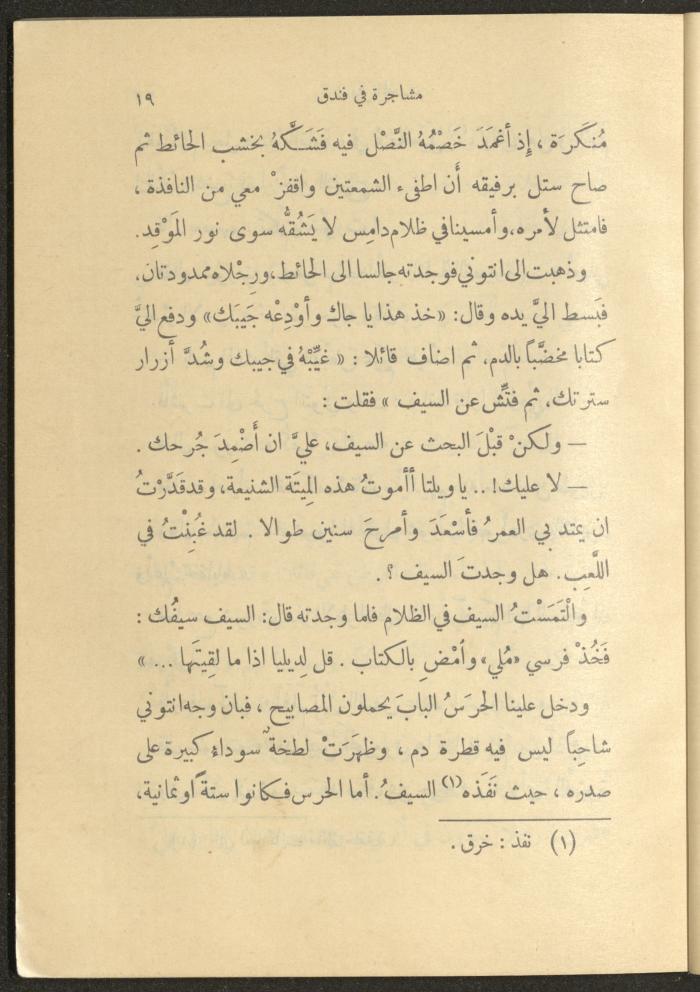 مشاجرة في فندق ١٩
مُنكَرَة ، إِذ أغمَدَ خَصْمُهُ النَّصْل فيه فَشَكَّهُ بخشب الحائط ثم
صاح ستل برفيقه أَن اطفىء الشمعتين واقفزْ معي من النافذة ،
فامتثل لأمره، وأمسينا في ظلام دامِس لا يَشُقُّه سوى نور المَوْقِد.
وذهبت الى انتوني فوجدته جالسا الى الحائط، ورِجْلاه ممدودتان،
فبَسط اليَّ يده وقال: «خذ هذا يا جاك وأَوْدِعْه جَيبَك» ودفع اليَّ
كتابا مخضَّباً بالدم، ثم اضاف قائلا : « غيِّبْهُ في جيبك وشُدَّ أزرار
سترتك، ثم فتِّش عن السيف » فقلت :
— ولكنْ قبْلَ البحث عن السيف، عليَّ ان أَضْمِدَ جُرحك .
— لا عليك! .. يا ويلتا أأموتُ هذه المِيتَة الشنيعة، وقد قَدَّرْتُ
ان يمتد بي العمرُ فأسْعَدَ وأمرحَ سنين طوالا . لقد غُبِنْتُ في
اللَّعِب. هل وجدتَ السيف ؟ .
والْتَمَسْتُ السيف في الظلام فلما وجدته قال: السيف سيفُك :
فَخُذْ فرسي «مُلي» وأمْضِ بالكتاب . قل لِديليا اذا ما لقِيتَها ... »
ودخل علينا الحرَسُ البابَ يحملون المصابيح ، فبان وجه انتوني
شاحِباً ليس فيه قطرة دم ، وظهَرَتْ لطخةٌ سوداءُ كبيرة على
صدره ، حيث نَفَذه (١) السيفُ. أما الحرس فكانوا ستةً او ثمانية،
(١) نفذ : خرق .